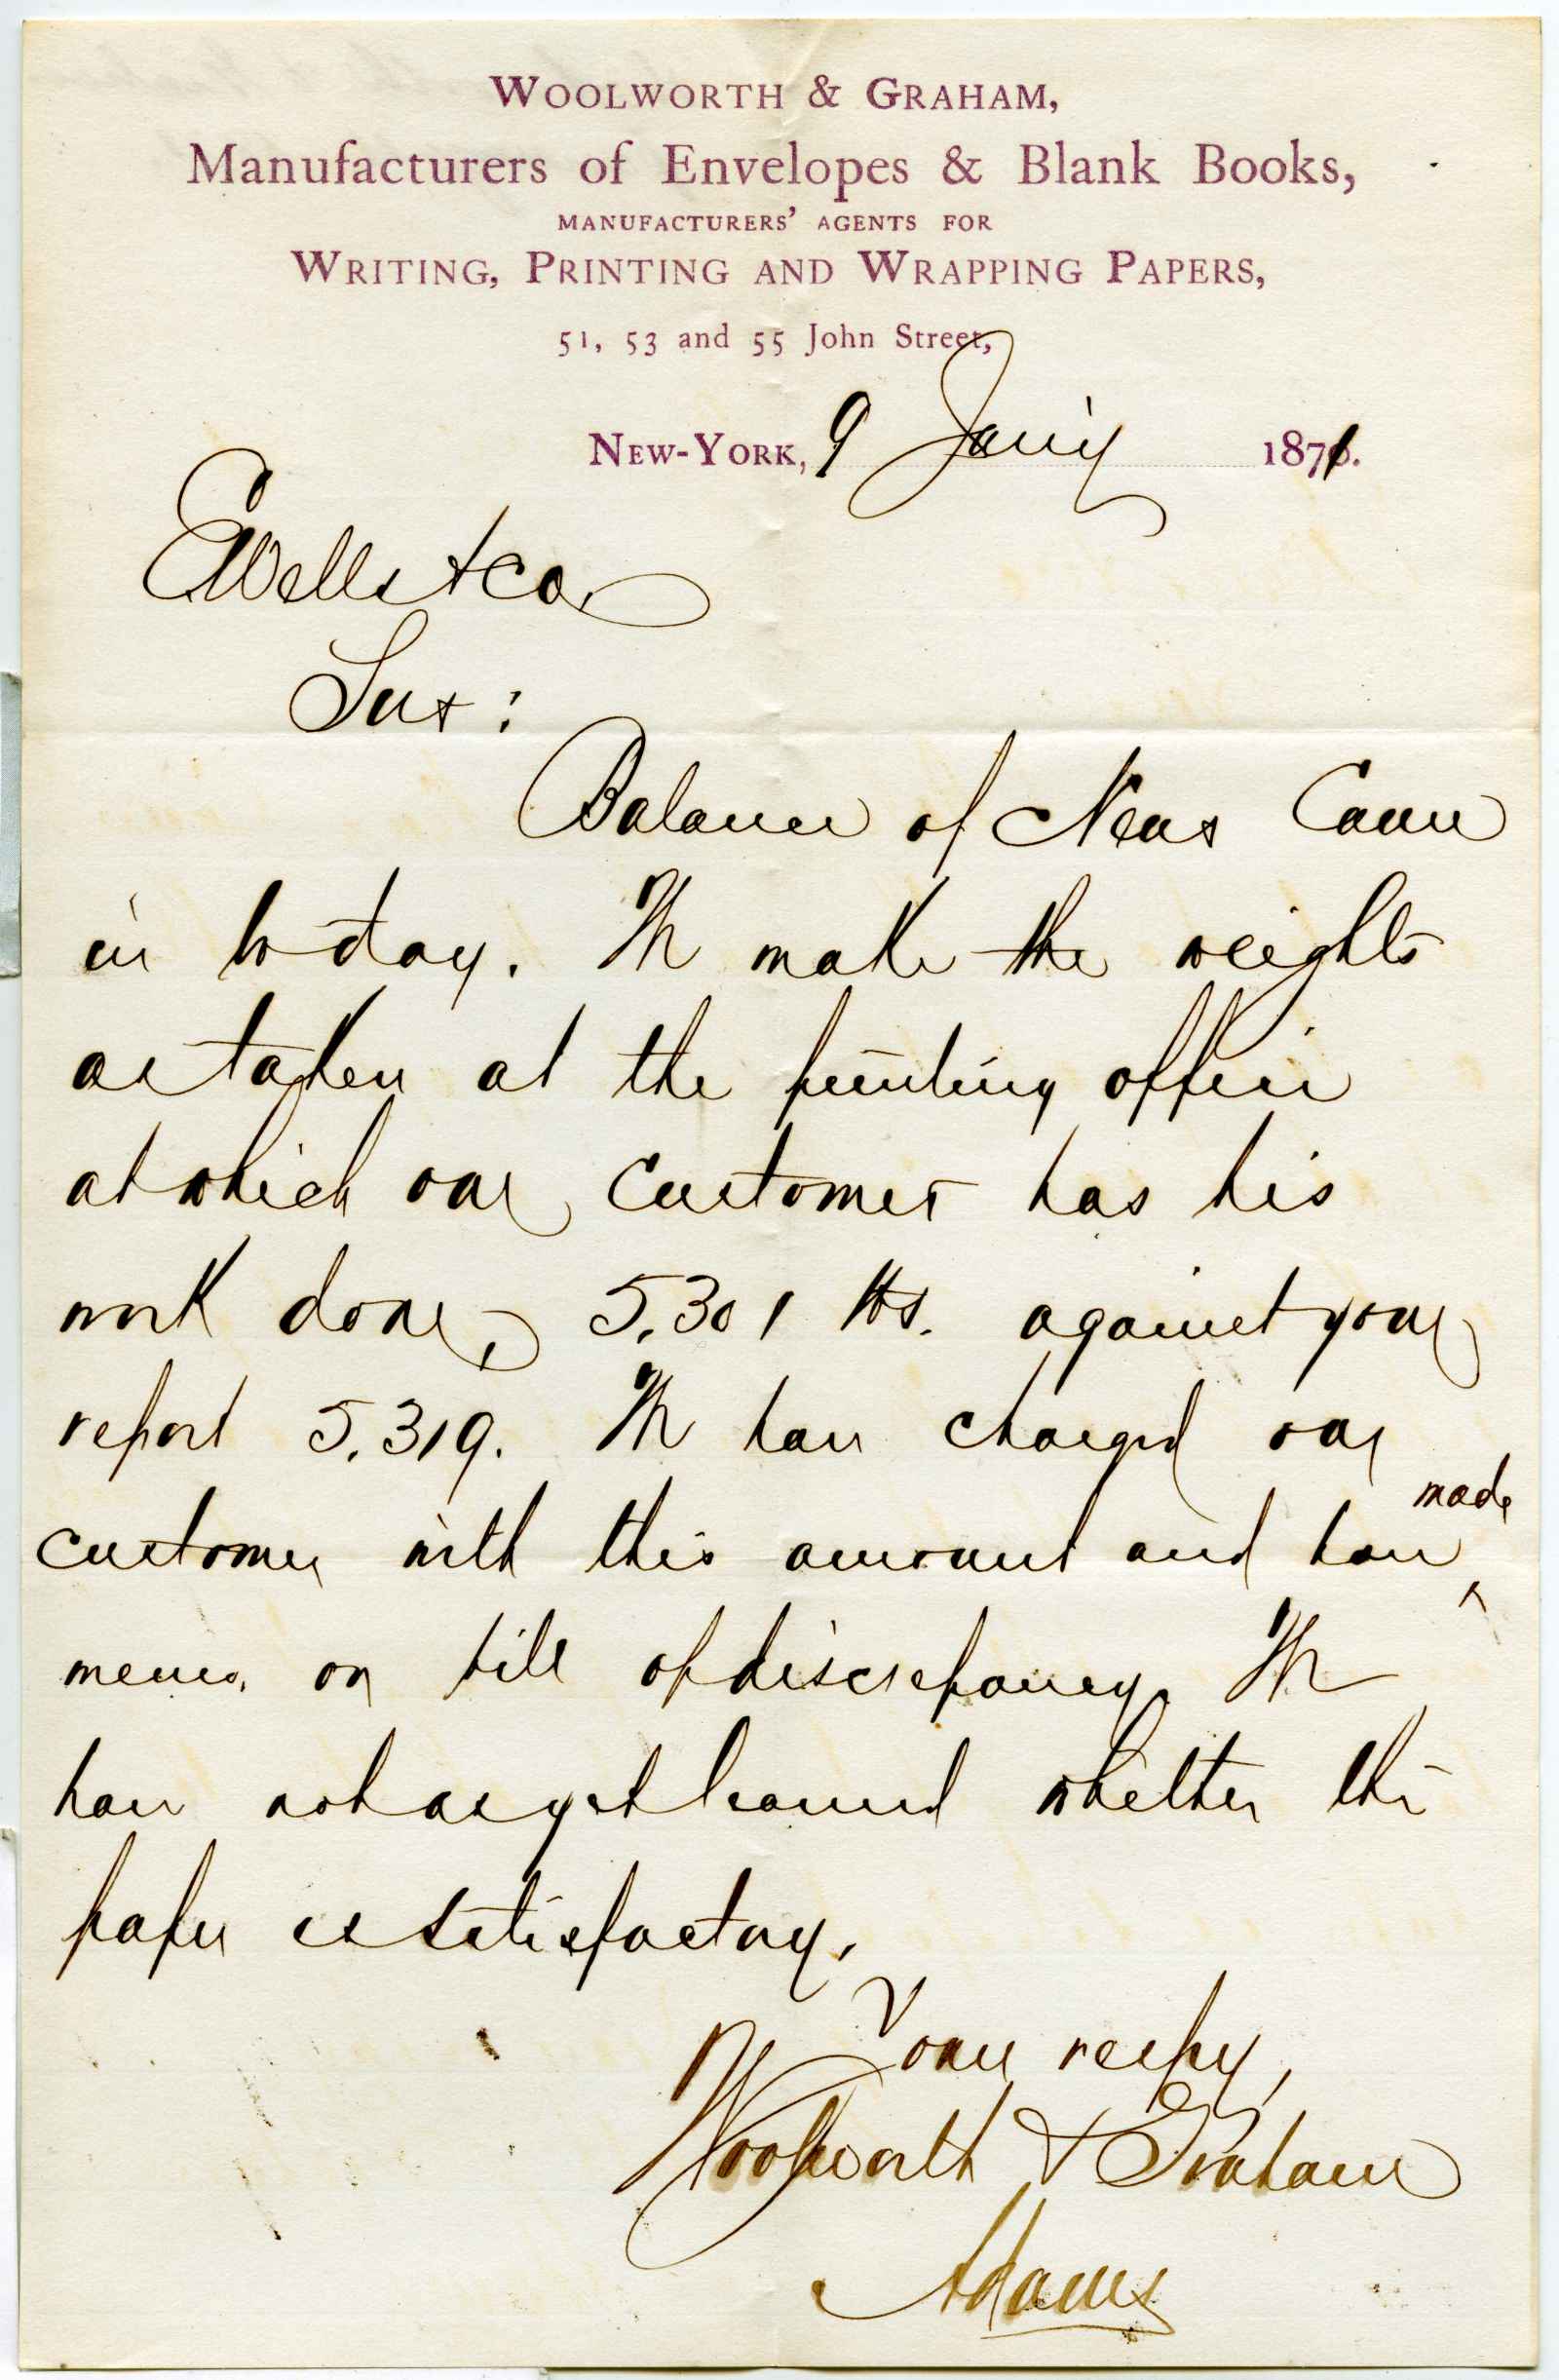 WOOLWORTH & GRAHAM,
Manufacturers of Envelopes & Blank Books,
MANUFACTURERS' AGENTS FOR
WRITING, PRINTING AND WRAPPING PAPERS,
51, 53 and 55 John Street,
NEW-YORK, 9 Jany 1871.
E Wells & Co.
Sirs:
Balance of News Came
in to day. We make the weights
as taken at the printing office
at which our Customer has his
work done, 5,301 lbs. against your
report 5,319. We have charged our
customer with this amount and have made
memo. on bill of discrepancy. We
have not as yet learned whether the
paper is satisfactory.
Yours respy,
Woolworth & Graham
Adams